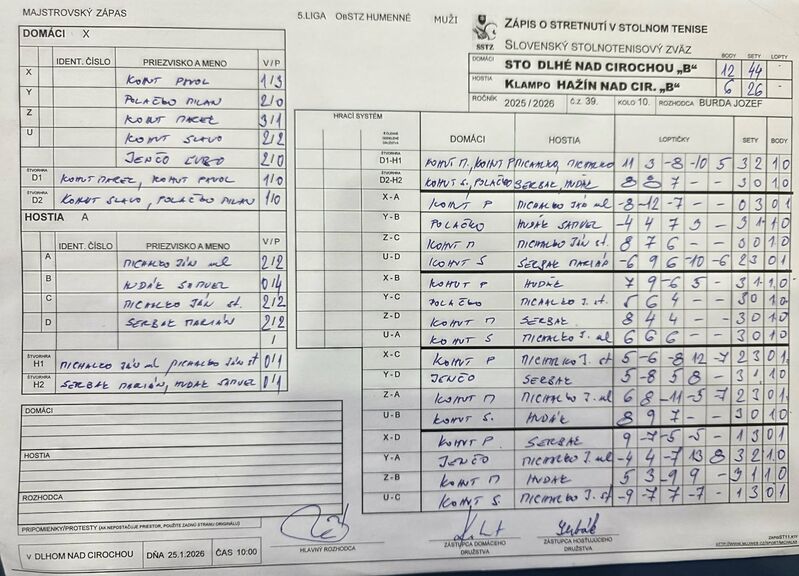 MAJSTROVSKÝ ZÁPAS
5.LIGA OBSTZ HUMENNÉ MUŽI
ZÁPIS O STRETNUTÍ V STOLNOM TENISE
SSTZ SLOVENSKÝ STOLNOTENISOVÝ ZVÄZ
DOMÁCI BODY SETY LOPTY
STO DLHÉ NAD CIROCHOU „B" 12 44
HOSTIA
KLAMPO HAŽÍN NAD CIR. „B" 6 26
ROČNÍK 2025 / 2026 Č.Z. 39. KOLO 10. ROZHODCA BURDA JOZEF
DOMÁCI X
IDENT. ČÍSLO PRIEZVISKO A MENO V / P
X KOHUT PAVOL 1/3
Y POLAČKO MILAN 2/0
Z KOHUT MAREK 3/1
U KOHUT SLAVO 2/2
JENČO ĽUBO 2/0
ŠTVORHRA D1 KOHUT MAREK, KOHUT PAVOL 1/0
ŠTVORHRA D2 KOHUT SLAVO, POLAČKO MILAN 1/0
HOSTIA A
IDENT. ČÍSLO PRIEZVISKO A MENO V / P
A MICHALKO JÁN ml 2/2
B HUDÁK SAMUEL 0/4
C MICHALKO JÁN st. 2/2
D SERBAK MARIÁN 2/2
/
ŠTVORHRA H1 MICHALKO JÁN ml, MICHALKO JÁN st 0/1
ŠTVORHRA H2 SERBAK MARIÁN, HUDÁK SAMUEL 0/1
DOMÁCI
HOSTIA
ROZHODCA
PRIPOMIENKY/PROTESTY (AK NEPOSTAČUJE PRIESTOR, POUŽITE ZADNÚ STRANU ORIGINÁLU)
V DLHOM NAD CIROCHOU DŇA 25.1.2026 ČAS 10:00
HRACÍ SYSTÉM DOMÁCI HOSTIA LOPTIČKY SETY BODY
ŠTVORHRA D1-H1 KOHUT M., KOHUT P MICHALKO, MICHALKO 11 3 -8 -10 5 3 2 1 0
ŠTVORHRA D2-H2 KOHUT S., POLAČKO SERBAK, HUDÁK 8 8 7 — — 3 0 1 0
X - A KOHUT P MICHALKO JÁN ml -8 -12 -7 — — 0 3 0 1
Y - B POLAČKO HUDÁK SAMUEL -4 4 7 3 — 3 1 1 0
Z - C KOHUT M MICHALKO JÁN st. 8 7 6 — — 3 0 1 0
U - D KOHUT S SERBAK MARIÁN -6 9 6 -10 -6 2 3 0 1
X - B KOHUT P HUDÁK 7 9 -6 5 — 3 1 1 0
Y - C POLAČKO MICHALKO J. st. 5 6 4 — — 3 0 1 0
Z - D KOHUT M SERBAK 8 4 4 — — 3 0 1 0
U - A KOHUT S MICHALKO J. ml 6 6 6 — — 3 0 1 0
X - C KOHUT P MICHALKO J. st 5 -6 -8 12 -7 2 3 0 1
Y - D JENČO SERBAK 5 -8 5 8 — 3 1 1 0
Z - A KOHUT M MICHALKO J. ml 6 8 -11 -5 -7 2 3 0 1
U - B KOHUT S. HUDÁK 8 9 7 — — 3 0 1 0
X - D KOHUT P. SERBAK 9 -7 -5 -5 — 1 3 0 1
Y - A JENČO MICHALKO J. ml -4 4 -7 13 8 3 2 1 0
Z - B KOHUT M HUDÁK 5 3 -9 9 — 3 1 1 0
U - C KOHUT S MICHALKO J. st -9 -7 7 -7 — 1 3 0 1
HLAVNÝ ROZHODCA
ZÁSTUPCA DOMÁCEHO DRUŽSTVA
Serbák
ZÁSTUPCA HOSŤUJÚCEHO DRUŽSTVA